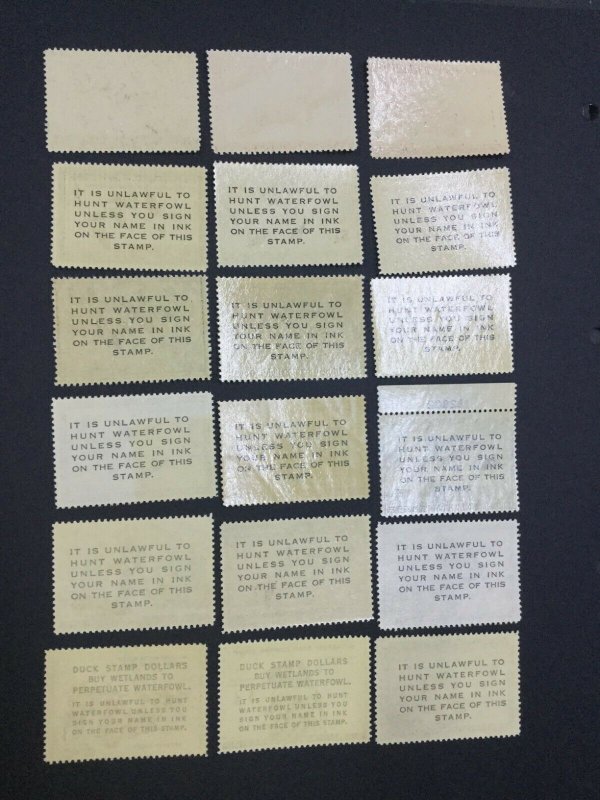 IT IS UNLAWFUL TO
HUNT WATERFOWL
UNLESS YOU SIGN
YOUR NAME IN INK
ON THE FACE OF THIS
STAMP.
IT IS UNLAWFUL TO
HUNT WATERFOWL
UNLESS YOU SIGN
YOUR NAME IN INK
ON THE FACE OF THIS
STAMP.
IT IS UNLAWFUL TO
HUNT WATERFOWL
UNLESS YOU SIGN
YOUR NAME IN INK
ON THE FACE OF THIS
STAMP.
IT IS UNLAWFUL TO
HUNT WATERFOWL
UNLESS YOU SIGN
YOUR NAME IN INK
ON THE FACE OF THIS
STAMP.
IT IS UNLAWFUL TO
HUNT WATERFOWL
UNLESS YOU SIGN
YOUR NAME IN INK
ON THE FACE OF THIS
STAMP.
IT IS UNLAWFUL TO
HUNT WATERFOWL
UNLESS YOU SIGN
YOUR NAME IN INK
ON THE FACE OF THIS
STAMP.
IT IS UNLAWFUL TO
HUNT WATERFOWL
UNLESS YOU SIGN
YOUR NAME IN INK
ON THE FACE OF THIS
STAMP.
IT IS UNLAWFUL TO
HUNT WATERFOWL
UNLESS YOU SIGN
YOUR NAME IN INK
ON THE FACE OF THIS
STAMP.
IT IS UNLAWFUL TO
HUNT WATERFOWL
UNLESS YOU SIGN
YOUR NAME IN INK
ON THE FACE OF THIS
STAMP.
IT IS UNLAWFUL TO
HUNT WATERFOWL
UNLESS YOU SIGN
YOUR NAME IN INK
ON THE FACE OF THIS
STAMP.
IT IS UNLAWFUL TO
HUNT WATERFOWL
UNLESS YOU SIGN
YOUR NAME IN INK
ON THE FACE OF THIS
STAMP.
IT IS UNLAWFUL TO
HUNT WATERFOWL
UNLESS YOU SIGN
YOUR NAME IN INK
ON THE FACE OF THIS
STAMP.
DUCK STAMP DOLLARS
BUY WETLANDS TO
PERPETUATE WATERFOWL.
IT IS UNLAWFUL TO HUNT
WATERFOWL UNLESS YOU
SIGN YOUR NAME IN INK
ON THE FACE OF THIS STAMP.
DUCK STAMP DOLLARS
BUY WETLANDS TO
PERPETUATE WATERFOWL.
IT IS UNLAWFUL TO HUNT
WATERFOWL UNLESS YOU
SIGN YOUR NAME IN INK
ON THE FACE OF THIS STAMP.
IT IS UNLAWFUL TO
HUNT WATERFOWL
UNLESS YOU SIGN
YOUR NAME IN INK
ON THE FACE OF THIS
STAMP.